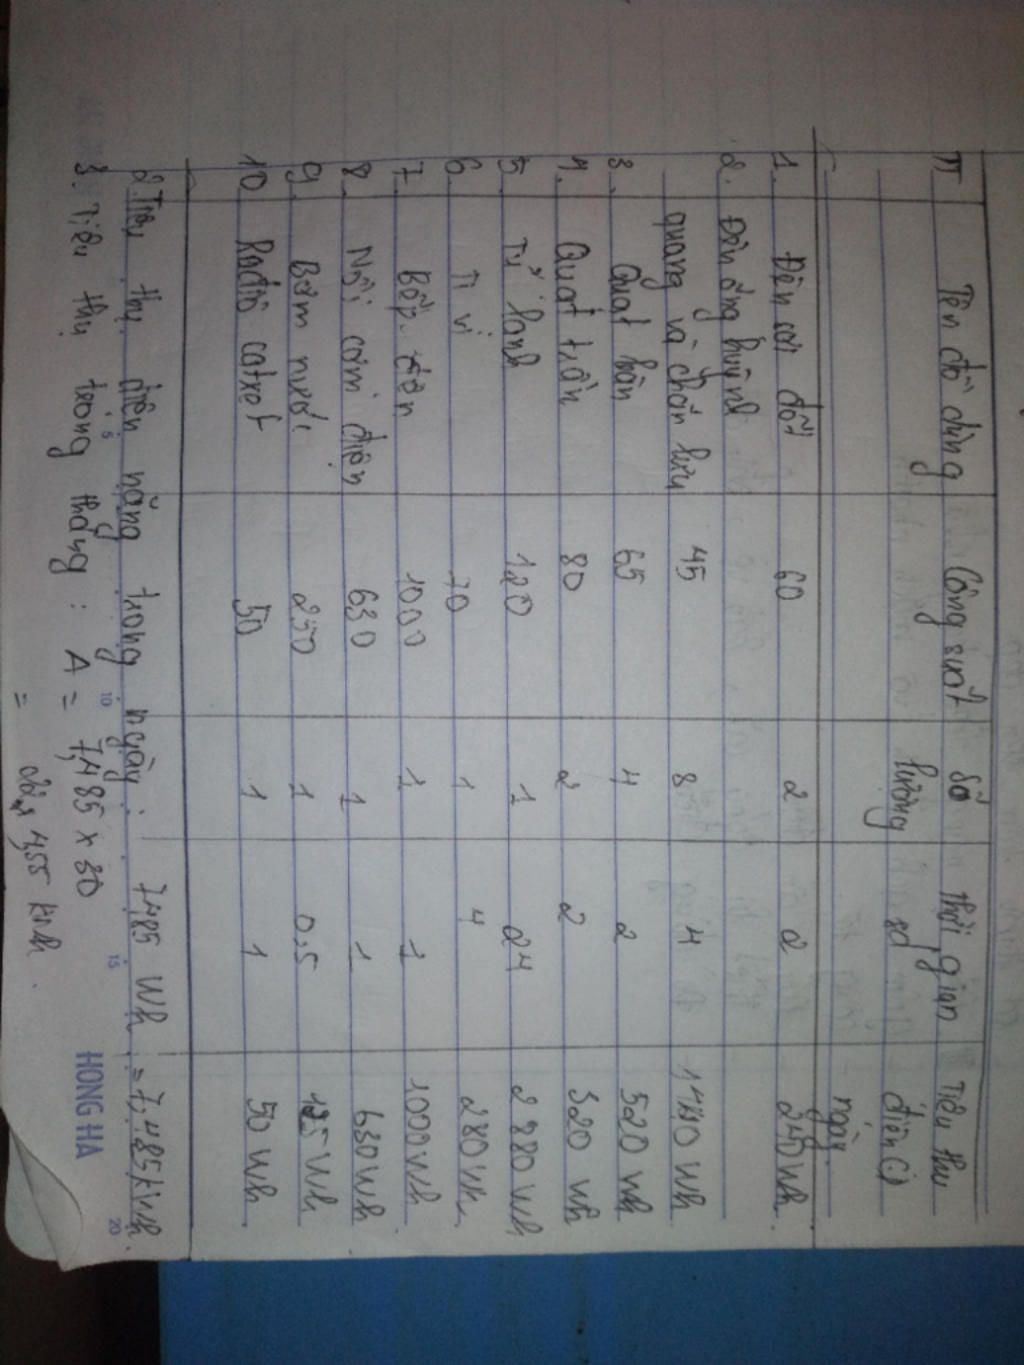 TT Tên đồ dùng Công suất Số lượng Thời gian sd Tiêu thụ điện 1 ngày
1. Đèn sợi đốt 60 2 2 240 Wh
2. Đèn ống huỳnh
quang và chấn lưu 45 8 4 1440 Wh
3. Quạt bàn 65 4 2 520 Wh
4. Quạt trần 80 2 2 320 Wh
5. Tủ lạnh 120 1 24 2880 Wh
6. Ti vi 70 1 4 280 Wh
7. Bếp điện 1000 1 1 1000 Wh
8. Nồi cơm điện 630 1 1 630 Wh
9. Bơm nước 250 1 0,5 125 Wh
10. Rađiô catxet 50 1 1 50 Wh
2. Tiêu thụ điện năng trong ngày: 7485 Wh = 7,485 kWh.
3. Tiêu thụ trong tháng: A = 7,485 x 30
= 4,55 kWh.
HONG HA
5 10 15 20